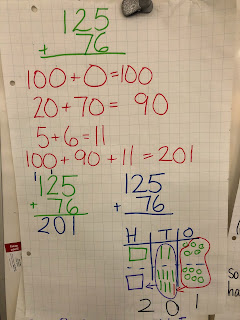 125
+ 76
100+0=100
20+70= 90
5+6=11
100+90+11=201
11
125
+ 76
201
125
+ 76
H T O
2 0 1
so
ha